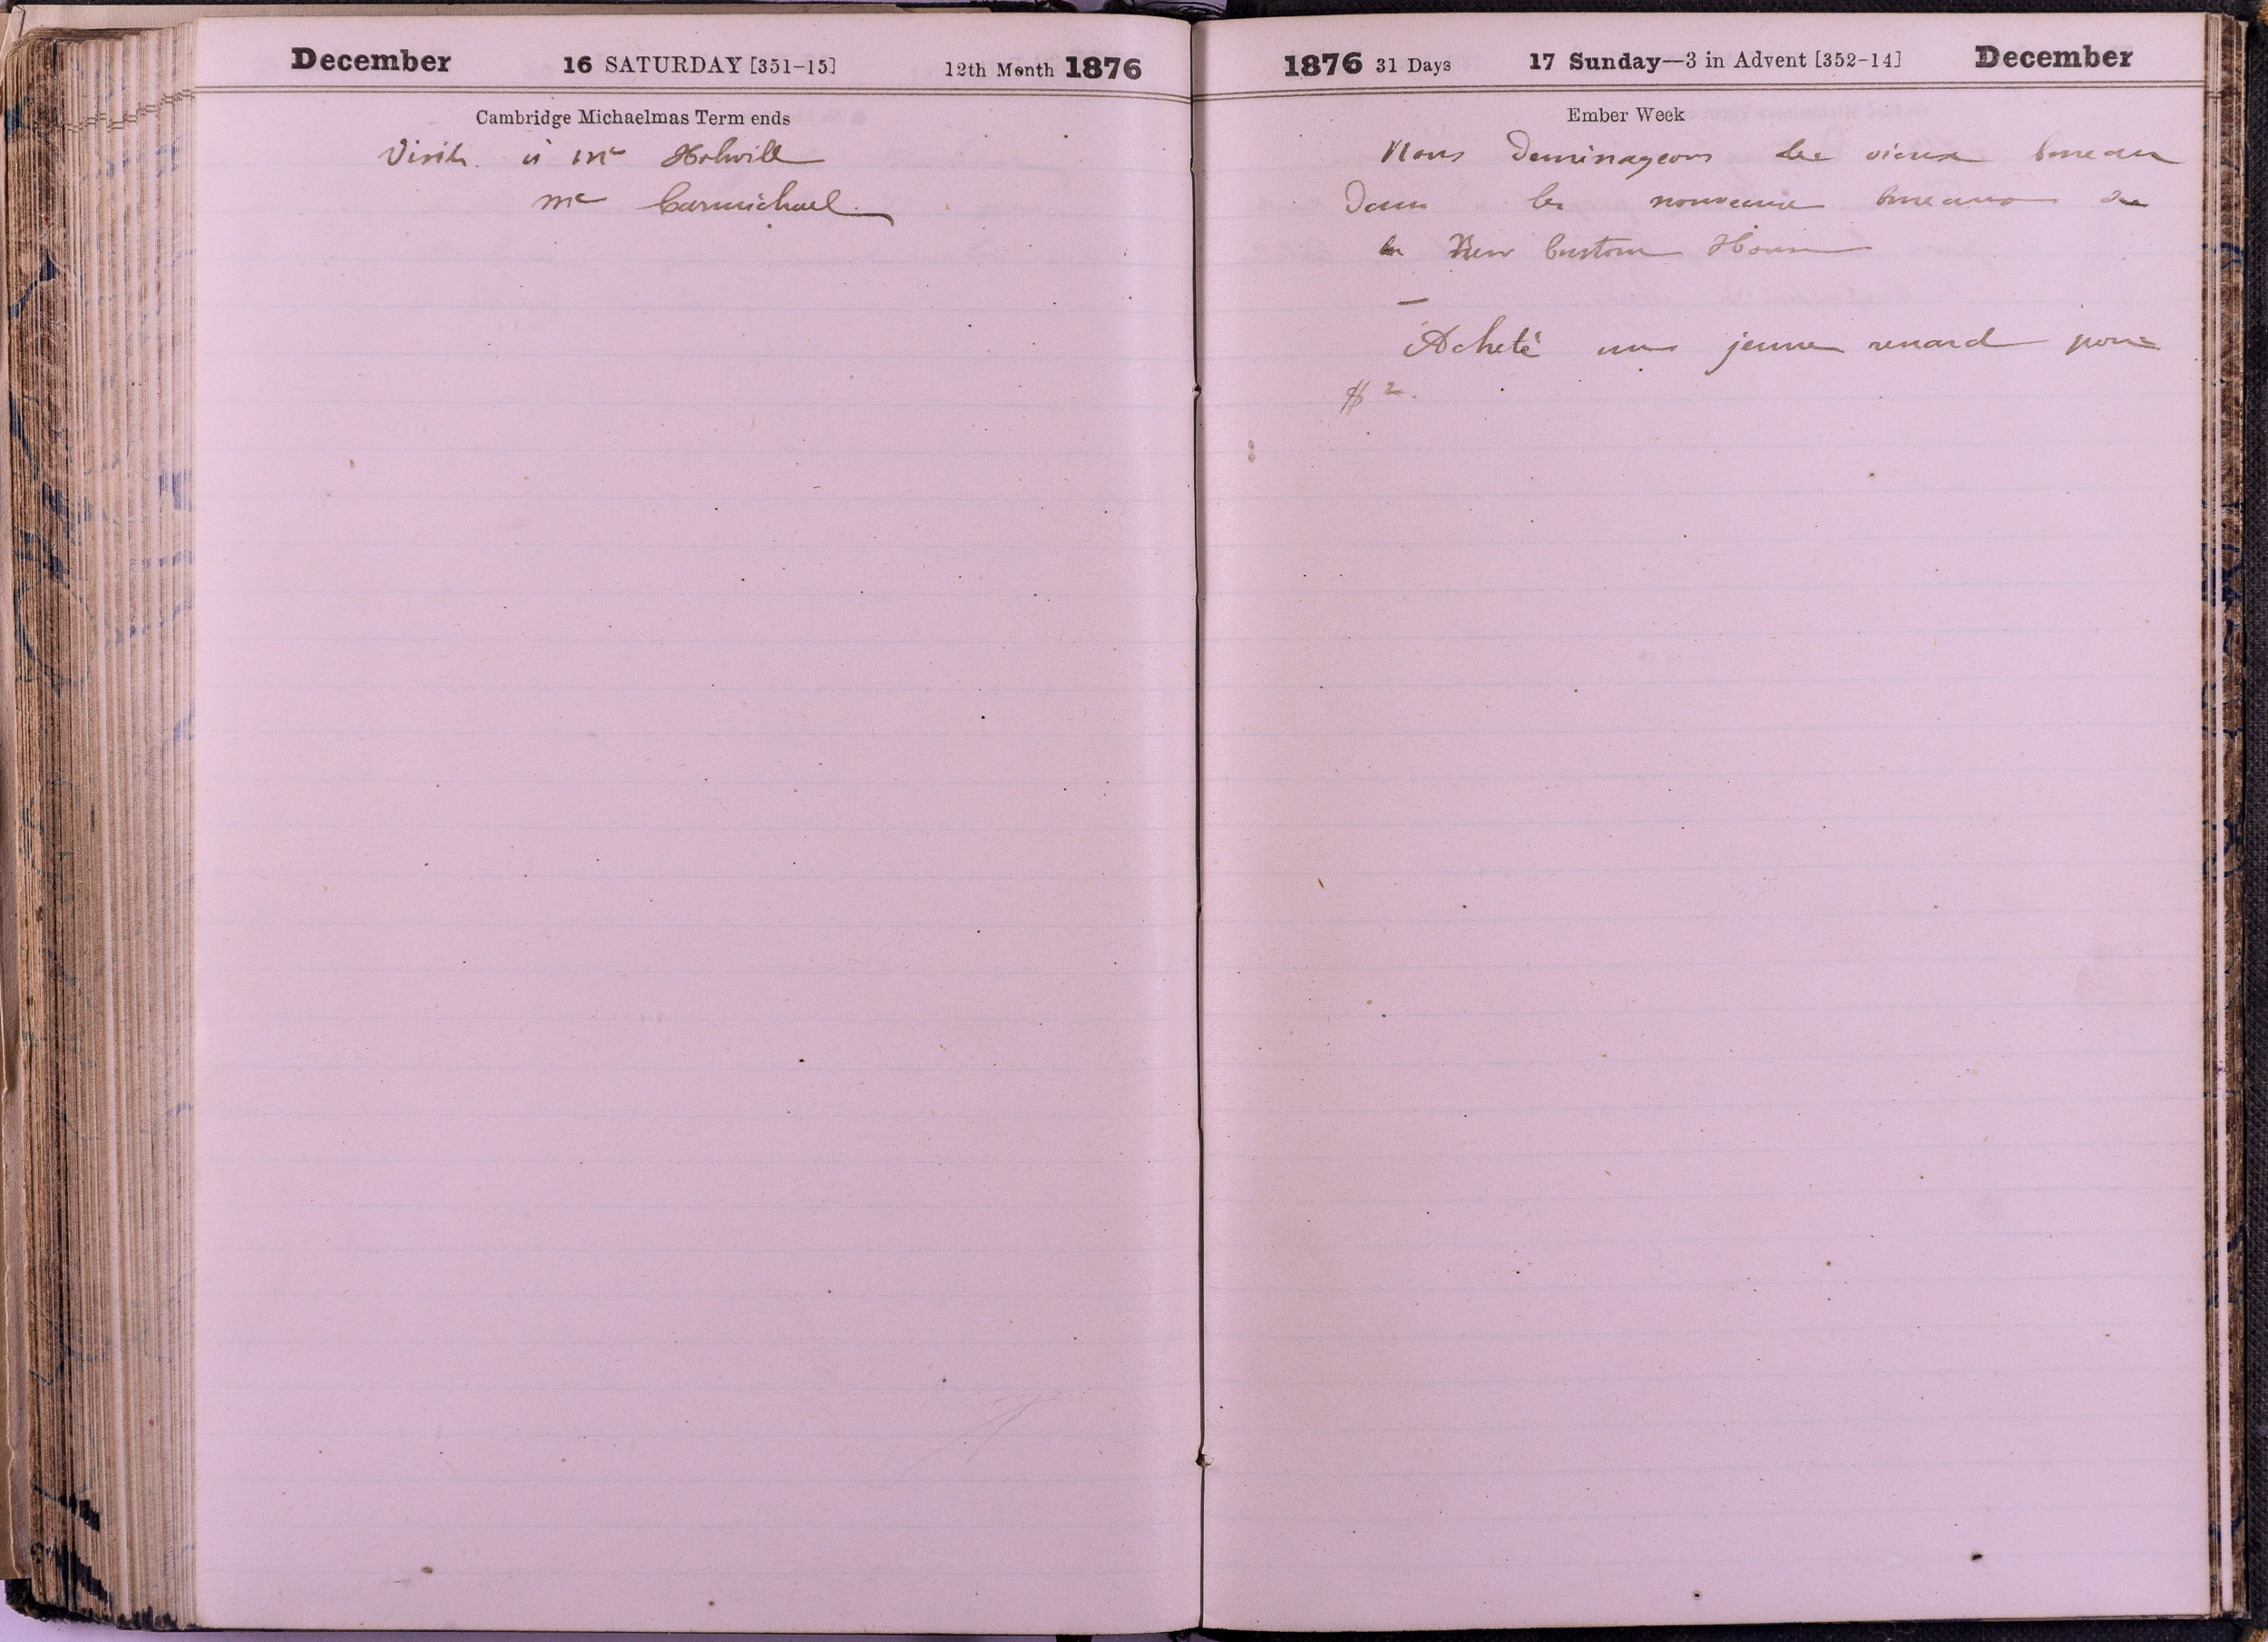 December 16 SATURDAY [351-15] 12th Month 1876
Cambridge Michaelmas Term ends
Visite à Mr Holwill
Mr Carmichael
1876 31 Days 17 Sunday—3 in Advent [352-14] December
Ember Week
Nous déménageons le vieux bureau
dans les nouveaux bureaux de
la New Custom House
—
Acheté un jeune renard pour
$ 2.